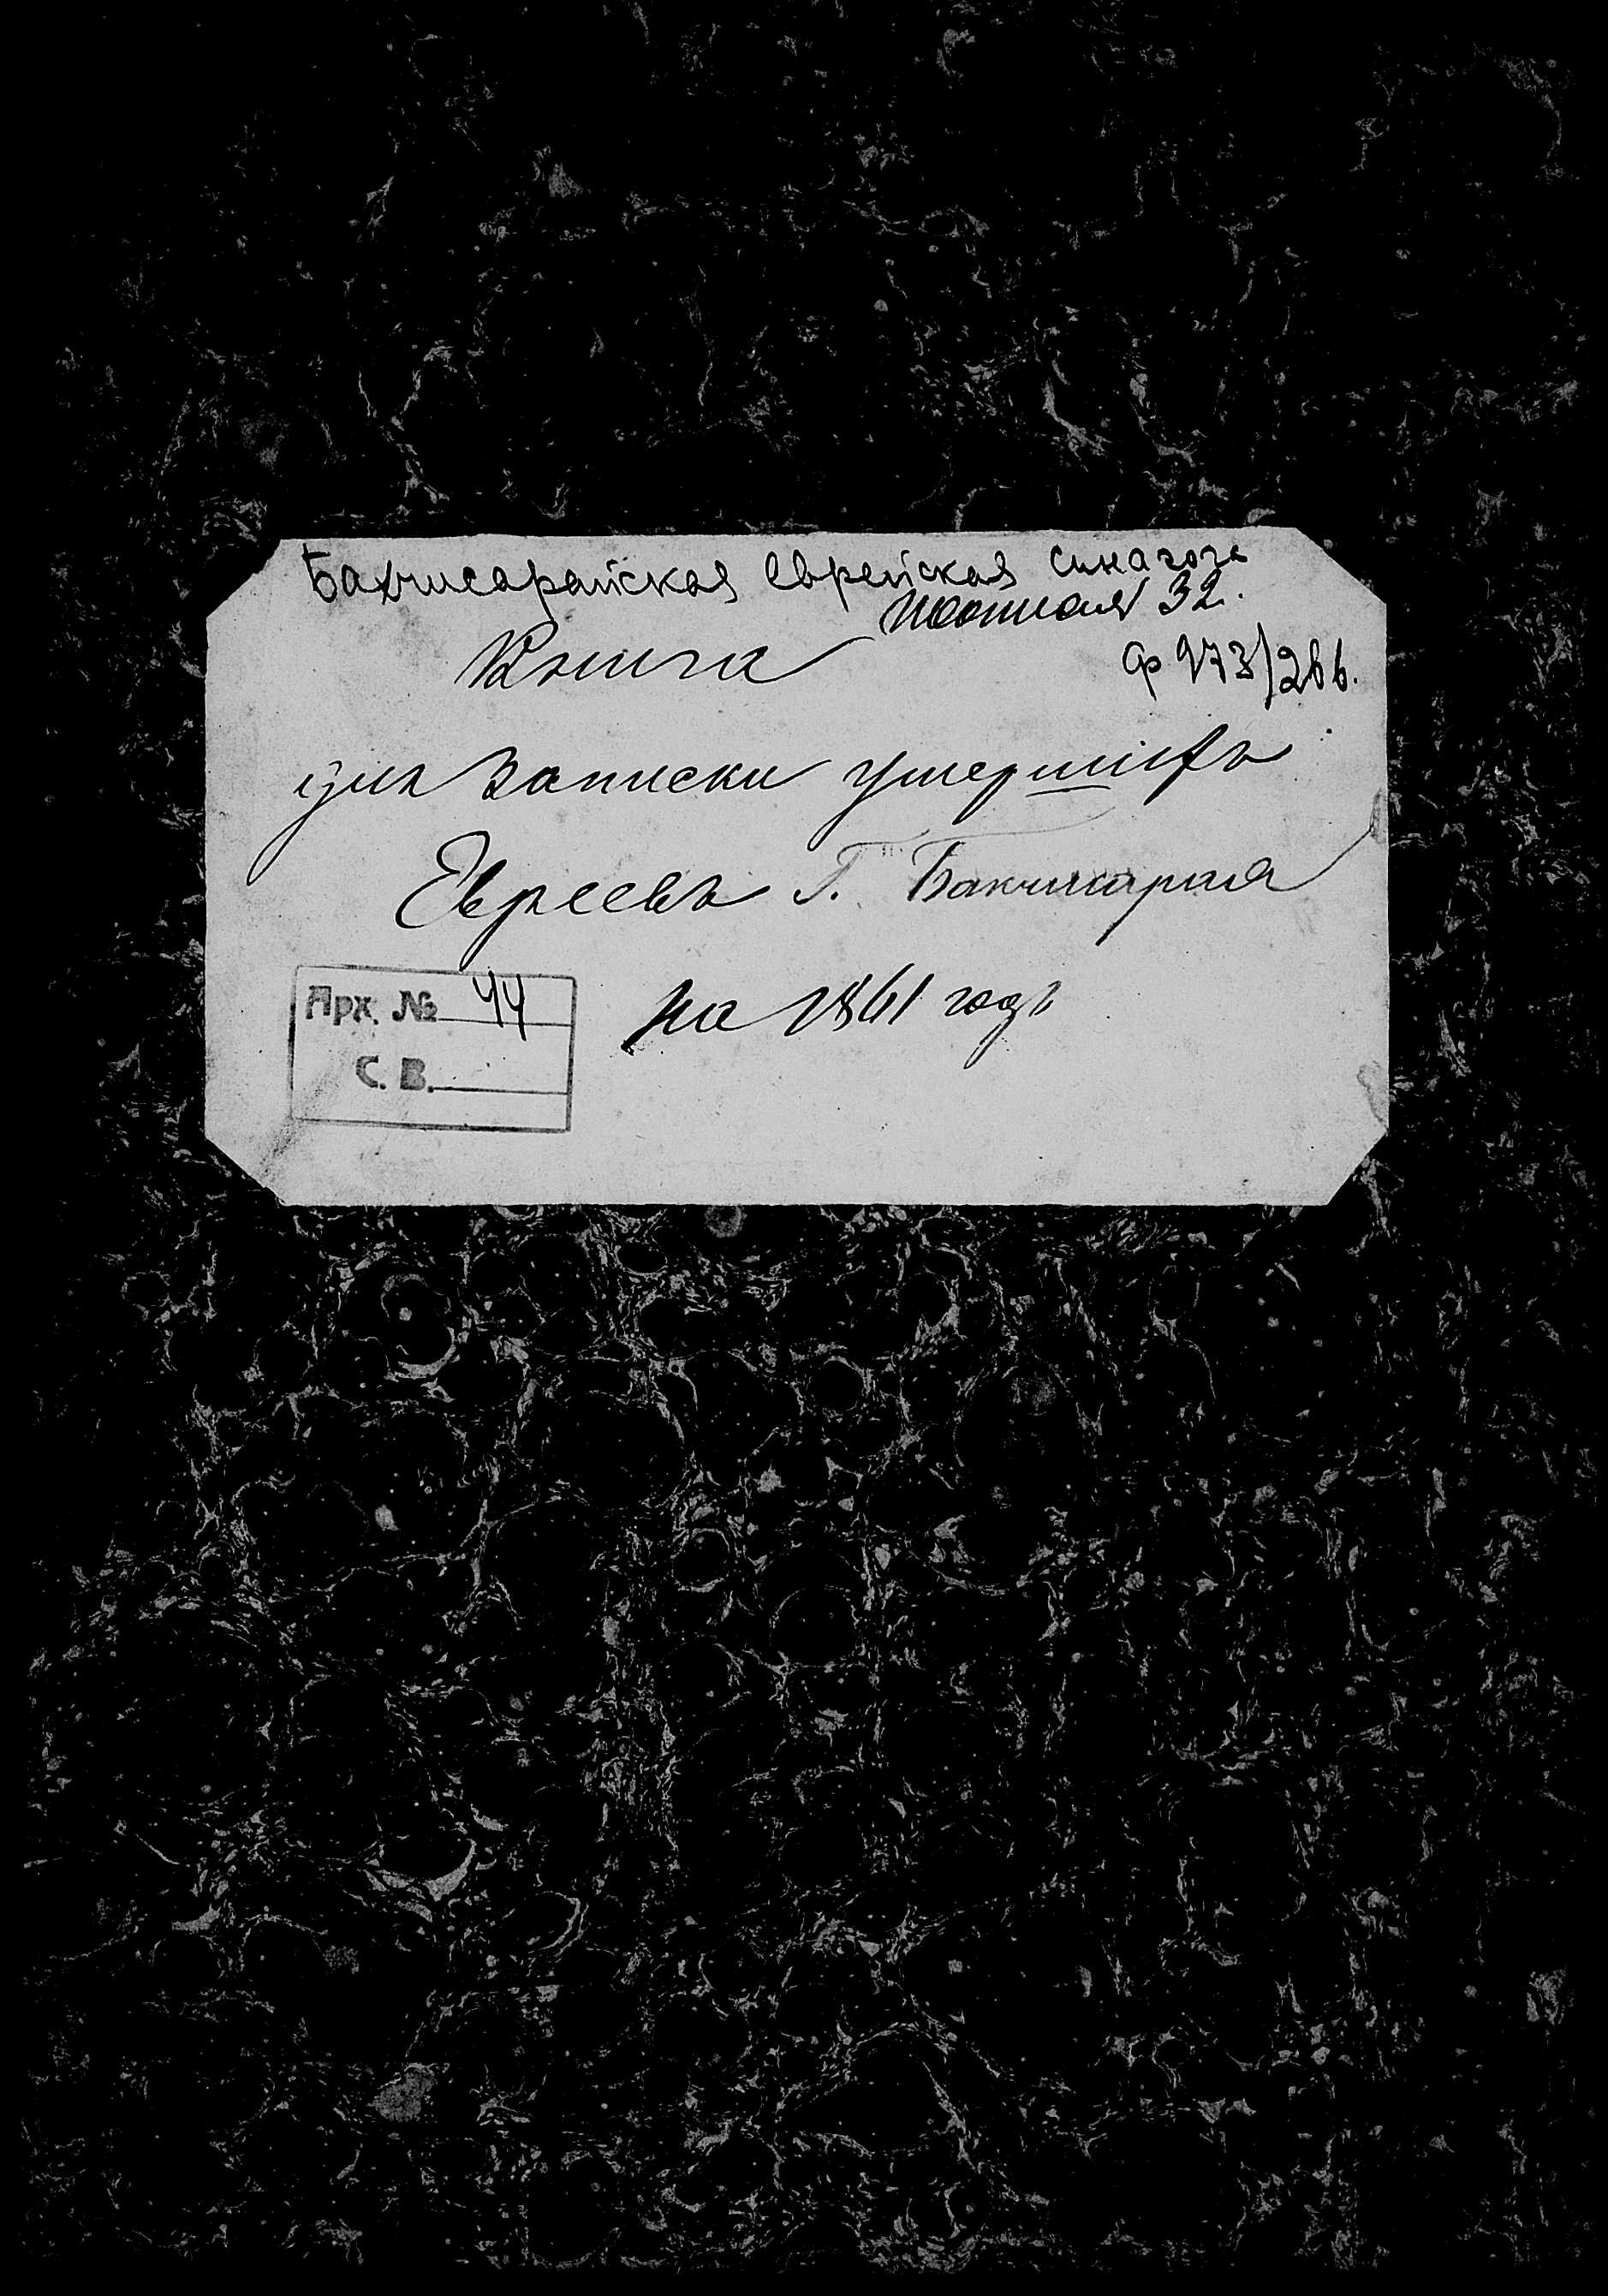 Бахчисарайская еврейская синагога
32.
Книга
Ф 973/266.
для записки умершихъ
Евреевъ Г. Бахчисарая
на 1861 годъ
Арх. № 44
С. В.